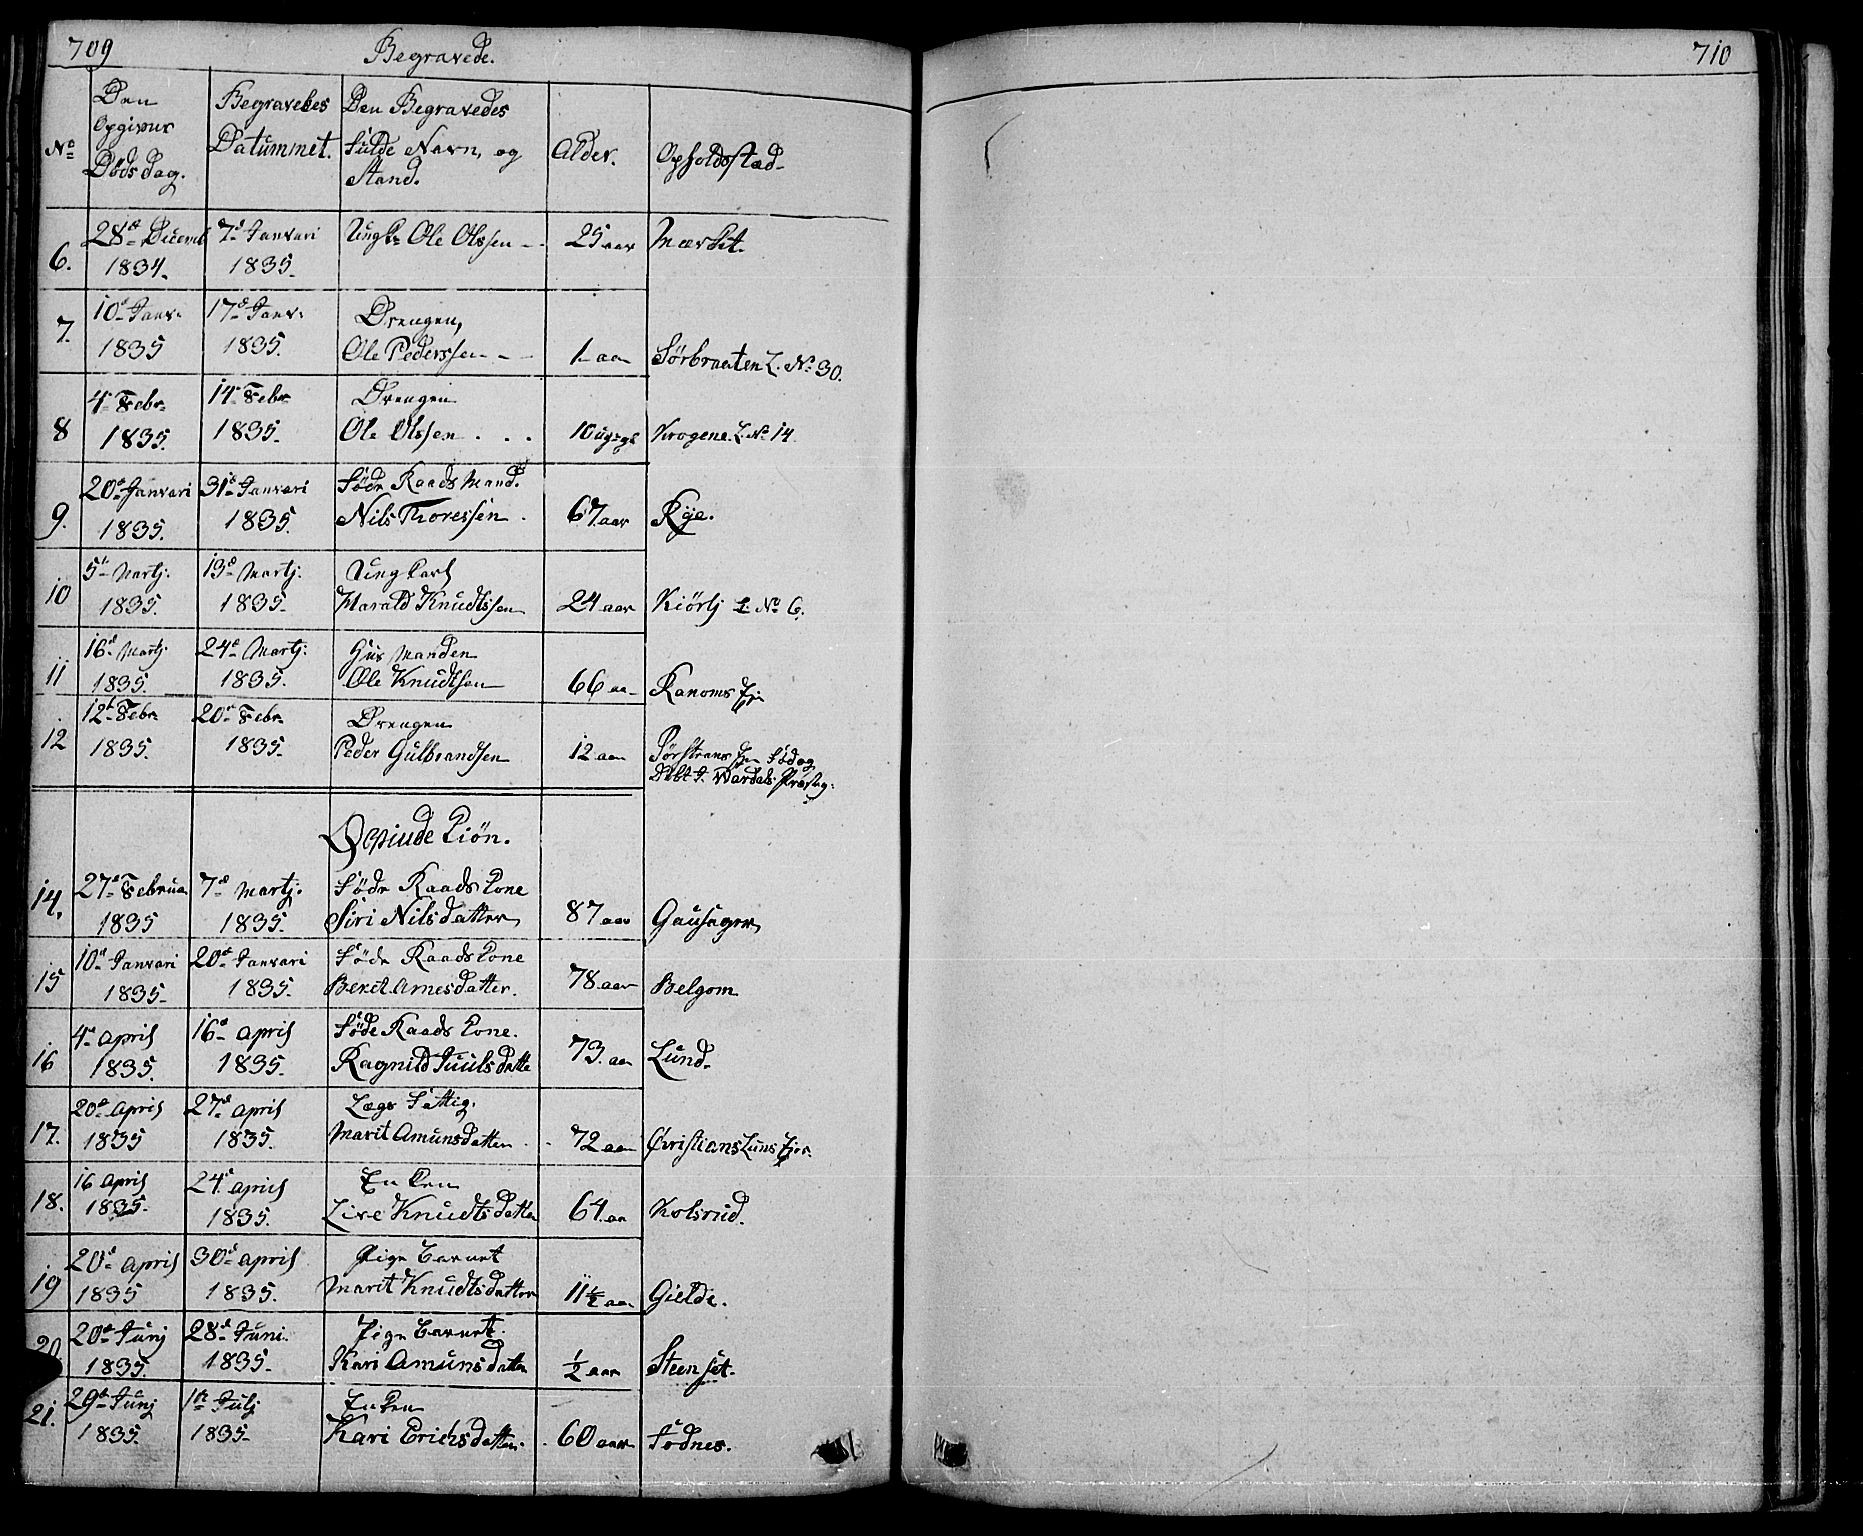 709
Begravede.
710
No
Den Opgivne Døds dag.
Begravelses Datummet.
Den Begravedes fulde Navn, og Stand.
Alder.
Opholdsstæd
6. 28de Decemb 1834. 7de Januari 1835. Ungk: Ole Olssen 25 aar
7. 10de Janv: 1835 17de Janv: 1835. Drengen, Ole Pederssen 1 aar Sørbraaten L. No 30.
8 4de Febr 1835. 14de Febr 1835. Drengen Ole Olssen 10 Krogene L. No 14.
9. 20de Januari 1835. 31de Januari 1835. Føde Raads Mand. Nils Thoressen 67 aar Rye.
10 5te Martj. 1835. 13de Martj. 1835. Ungkarl Harald Knudtssen 24 aar Kiørlj L. No 6.
11 16de Martj 1835. 24de Martj: 1835. Huusmanden Ole Knudtsen 66 aa
12 12te Febr 1835. 20de Febr 1835. Drengen Peder Gulbrandsen 12 aar Vardals Præsteg:
Qvinde Kiøn.
14. 27de Februar 1835 7de Martj: 1835. Føde Raads Kone Siri Nilsdatter 87 aar
15 10de Januari 1835. 20de Januari 1835. Føde Raads Kone Berit Arnesdatter. 78 aar Belgom
16 4de April 1835. 16de April 1835. Føde Raads Kone. Ragnild Juulsdatte 73. aa Lund.
17. 20de April 1835 27de April 1835. Lægs Fattig. Marit Amunsdatter 72 aar
18. 16 April 1835. 24de April 1835. Enken Live Knudtsdatter 64. aa Kolsrud.
19 20de April 1835 30de April 1835. Pige Barnet Marit Knudtsdatter 11 1/2 aa Gielde.
20 20de Junj 1835. 28de Juni. 1835. Pige Barnet. Kari Amunsdatter 1/2 aar Steenset.
21. 29de Junj 1835. 1ste Julj 1835. Enken Kari Erichsdatter. 60 aar Fodnes.